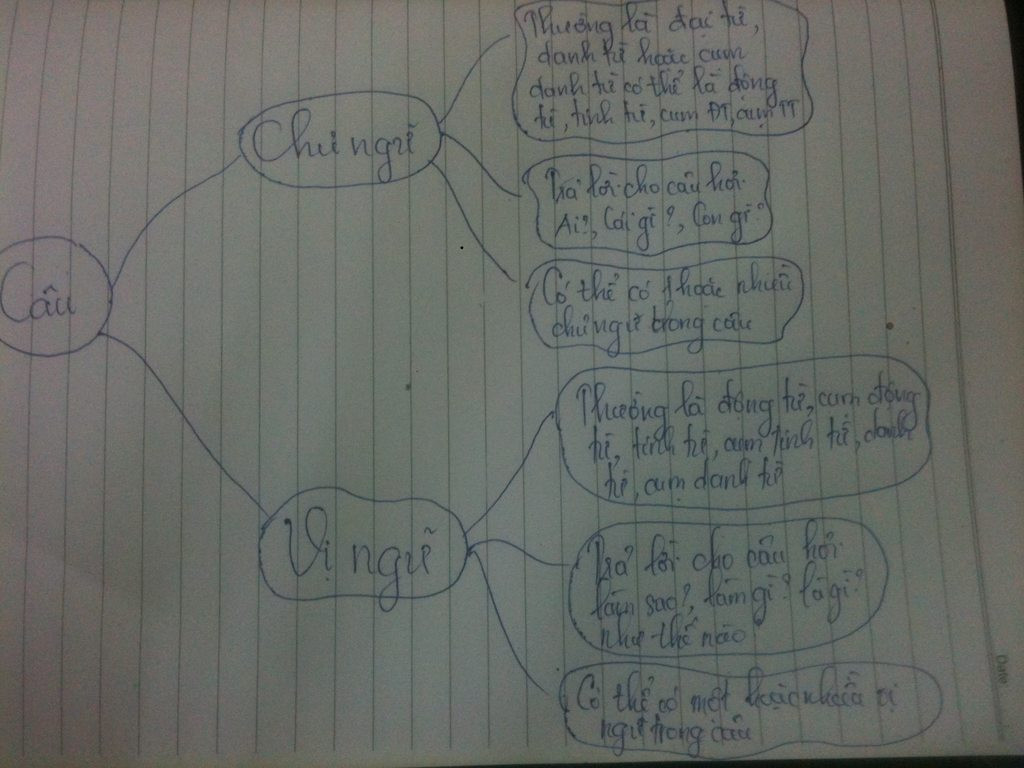 Câu
Chủ ngữ
Thường là đại từ,
danh từ hoặc cụm
danh từ có thể là động
từ, tính từ, cụm ĐT, cụm TT
Trả lời cho câu hỏi
Ai?, Cái gì?, Con gì?
Có thể có 1 hoặc nhiều
chủ ngữ trong câu
Vị ngữ
Thường là động từ, cụm động
từ, tính từ, cụm tính từ, danh
từ, cụm danh từ
Trả lời cho câu hỏi
làm sao?, làm gì? là gì?
như thế nào
Có thể có một hoặc nhiều vị
ngữ trong câu
Date